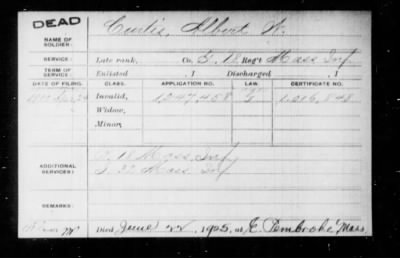 DEAD
NAME OF SOLDIER: Curtis, Albert W.
SERVICE: Late rank, Co. I. 18 Reg't Mass Inf
TERM OF SERVICE: Enlisted , 1 Discharged , 1
DATE OF FILING. CLASS. APPLICATION NO. LAW. CERTIFICATE NO.
Invalid, 1,247,458 1,016,848
Widow,
Minor,
ADDITIONAL SERVICES: 18 Mass Inf
32 Mass Inf
REMARKS:
Died June 22, 1905, at E. Pembroke Mass,